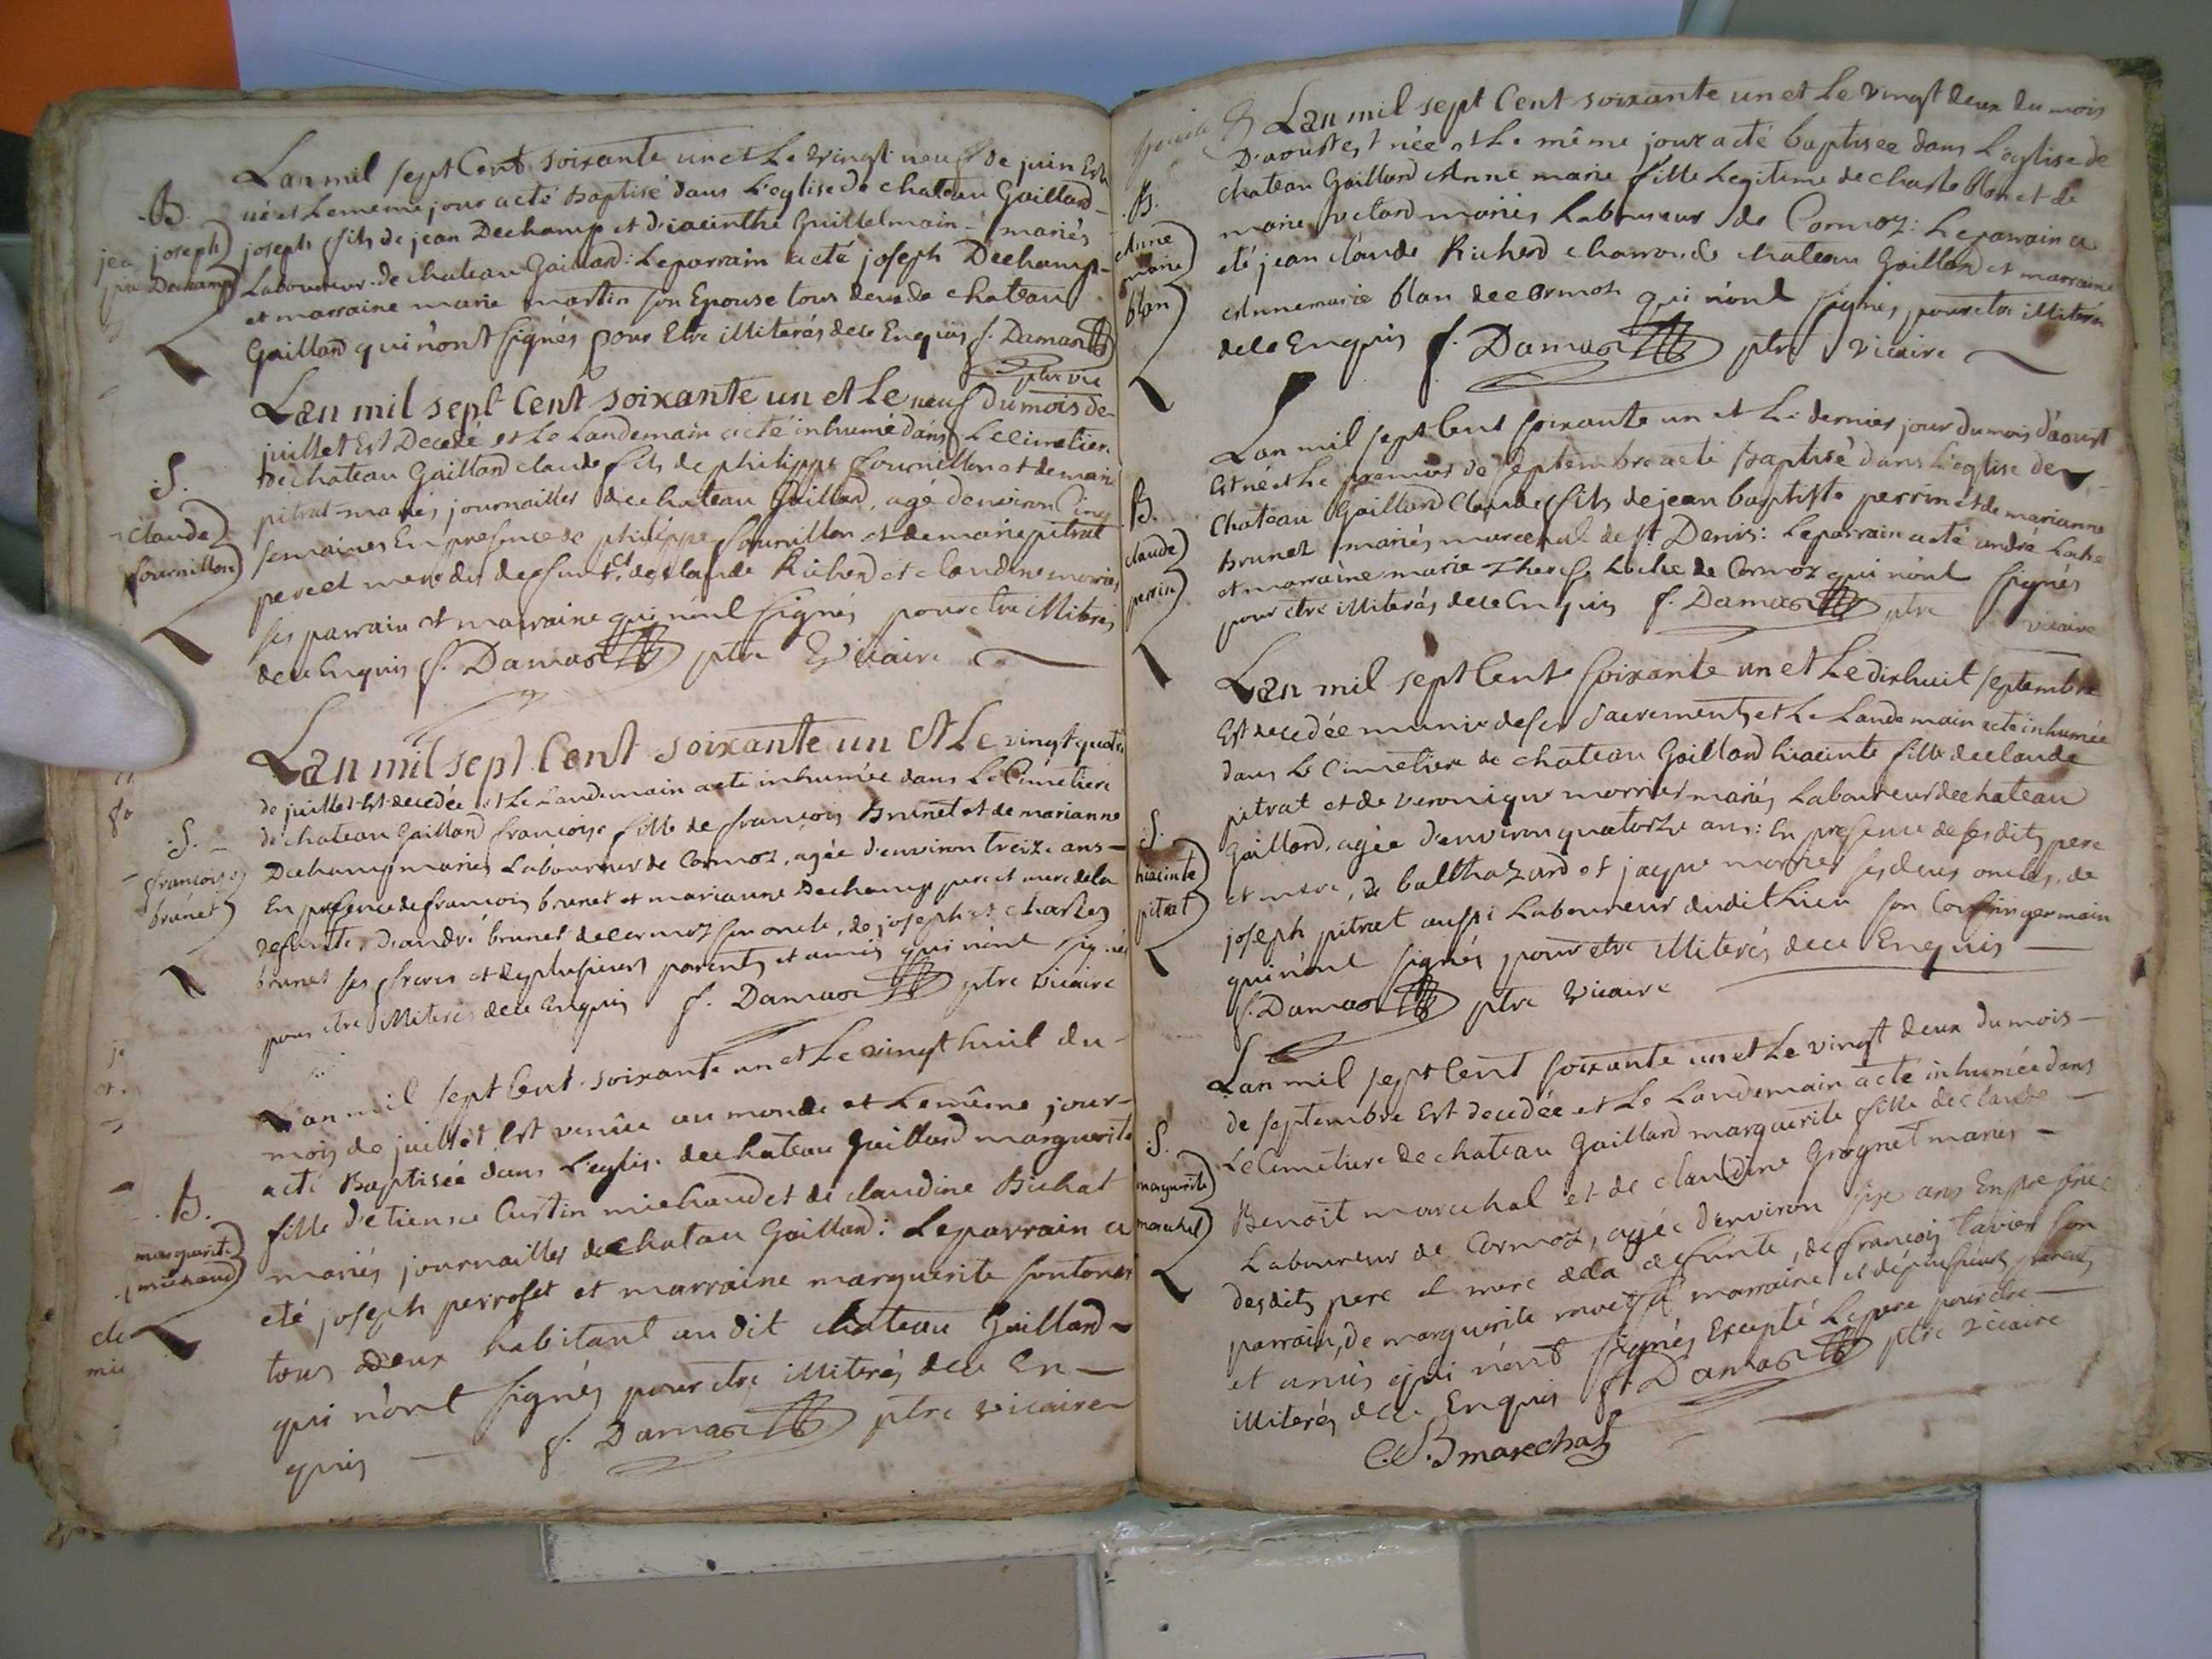 Lan mil sept Cent soixante un et Le vingt neuf de juin Est
né et Le meme jour a eté Baptisé dans L'eglise de chateau Gaillard
B.
joseph
Dechamp
joseph fils de jean Dechamp et d'iacinthe Guillelmain mariés
Laboureur de chateau Gaillard: Le parrain a eté joseph Dechamp
et marraine marie martin son Epouse tous deux de chateau
Gaillard qui n'ont signés pour Etre illiterés de ce Enquis f. Damas
ptre vic
Lan mil sept Cent soixante un et Le neuf du mois de
juillet Est Decedé et Le Landemain a eté inhumé dans Le cimetiere
de chateau Gaillard claude fils de philippe fournillon et de marie
S.
claude
fournillon
pitrat mariés journailler de chateau Gaillard, agé d'environ cinq
semaines En presence de philippe fournillon et de marie pitrat
pere et mere du defunt, de claude Richerd et claudine morrier
ses parrain et marraine qui n'ont signés pour etre illiterés
de ce Enquis f. Damas ptre Vicaire
Lan mil sept Cent soixante un Et Le vingt quatre
de juillet Est decedée et Le Landemain a eté inhumée dans Le Cimetiere
de chateau Gaillard françoise fille de françois Brunet et de marianne
S.
françoise
brunet
Dechamp mariés Laboureur de Cormoz, agée d'environ treize ans
En presence de francois brunet et marianne Dechamp pere et mere de la
defunte, d'andré brunet de cormoz son oncle, de joseph et charles
brunet ses freres et de plusieurs parents et amis qui n'ont signés
pour etre illiterés de ce Enquis f. Damas ptre Vicaire
L'an mil sept Cent soixante un et Le vingt huit du
mois de juillet Est venüe au monde et Le même jour
a eté Baptisée dans L'eglise de chateau Gaillard marguerite
B.
marguerite
michaud
fille d'etienne Curtin michaud et de claudine Bichat
mariés journailler de chateau Gaillard: Le parrain a
eté joseph perroset et marraine marguerite fontones
tous Deux habitant au dit chateau Gaillard
qui n'ont signés pour etre illiterés de ce En
quis f. Damas ptre vicaire
Lan mil sept Cent soixante un et Le vingt deux du mois
D'aoust est née et Le même jour a eté baptisée dans L'eglise de
chateau Gaillard Anne marie fille Legitime de charle blan et de
B.
Anne
marie
blan
marie vetard mariés Laboureur de Cormoz: Le parrain a
eté jean claude Richerd charron de chateau Gaillard et marraine
Anne marie blan de cormoz qui n'ont signés pour etre illiterés
de ce Enquis f. Damas ptre vicaire
Lan mil sept Cent soixante un et Le dernier jour du mois d'aoust
Est né et Le premier de septembre a eté Baptisé dans L'eglise de
Chateau Gaillard Claude fils de jean baptiste perrin et de marianne
B.
claude
perrin
Brunet mariés marechal de St Denis: Le parrain a eté andré Loche
et marraine marie Therese Loche de Cormoz qui n'ont signés
pour etre illiterés de ce Enquis f. Damas ptre vicaire
Lan mil sept Cent soixante un et Le dixhuit septembre
Est decedée munie de ses sacrements et Le Landemain a eté inhumée
dans Le Cimetiere de chateau Gaillard hiacinte fille de claude
pitrat et de veronique morrier mariés Laboureur de chateau
S.
hiacinte
pitrat
Gaillard, agée d'environ quatorze ans: En presence de ses dits pere
et mere, de balthazard et jacque morrier ses deux oncles, de
joseph pitrat aussi Laboureur du dit Lieu son Cousin germain
qui n'ont signés pour etre illiterés de ce Enquis
f. Damas ptre vicaire
Lan mil sept Cent soixante un et Le vingt deux du mois
de septembre Est decedée et Le Landemain a eté inhumée dans
Le Cimetiere de chateau Gaillard marguerite fille de claude
S.
marguerite
marechal
Benoit marechal et de claudine Grognet mariés
Laboureur de Cormoz, agée d'environ six ans En presence
desdits pere et mere de la defunte, de françois tavier son
parrain, de marguerite marraine et de plusieurs parents
et amis qui n'ont signés Excepté Le pere pour etre
illiterés de ce Enquis f. Damas ptre vicaire
C. B marechal